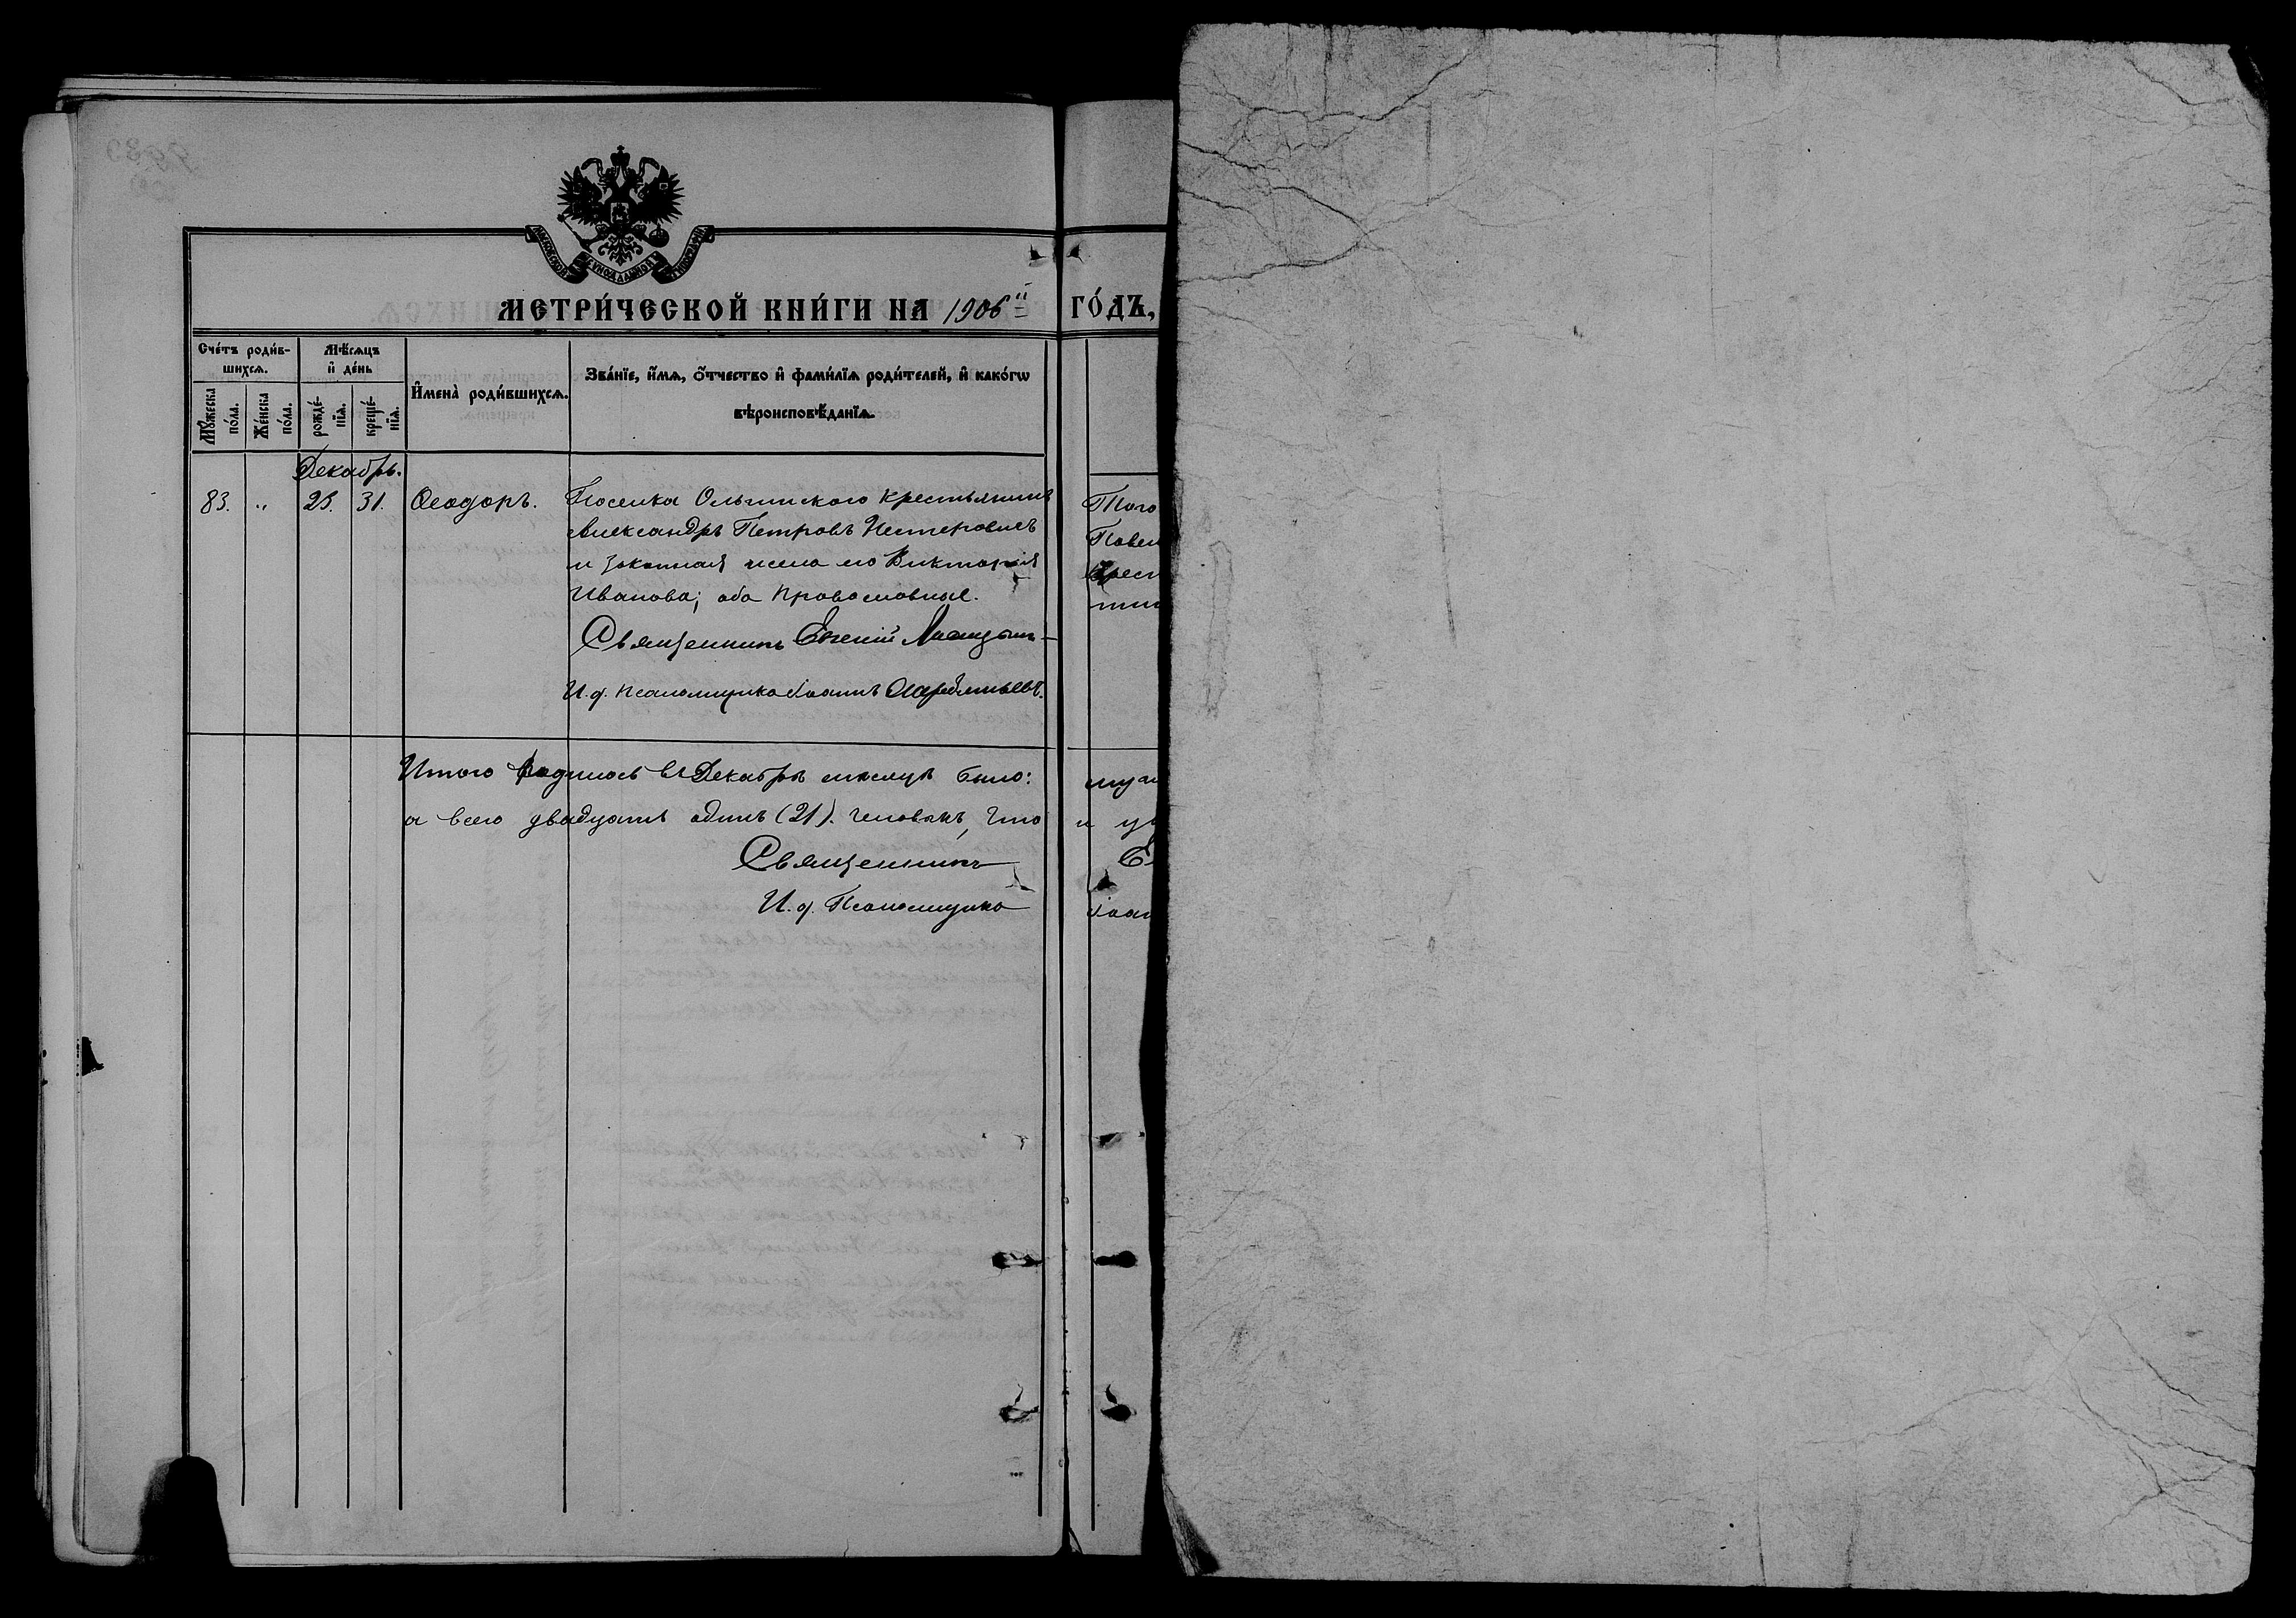 МОСКОВСКОЙ СѴНОДАЛЬНОЙ ТИПОГРАФІИ
МЕТРИ́ЧЕСКОЙ КНИ́ГИ НА 1906й ГО́ДЪ,
Сче́тъ роди́в-
шихсѧ.
Мѣ́сѧцъ
и҆ де́нь
Мꙋ́жеска
по́ла.
Же́нска
по́ла.
рожде́-
нїѧ.
креще́-
нїѧ.
И҆мена̀ роди́вшихсѧ.
Зва́нїе, и҆́мѧ, ѻ҆́тчество и҆ фами́лїѧ роди́телей, и҆ како́гѡ
вѣроисповѣ́данїѧ.
Декабрь.
83. „ 25. 31. Ѳеодоръ. Поселка Ольгинского крестьянинъ
Александръ Петровъ Нестеровичъ
и законная жена его Виктория
Иванова; оба православные.
Священникъ Евгеній
И. д. псаломщика Іоаннъ
Итого родилось въ Декабрѣ мѣсяцѣ было:
а всего двадцать одинъ (21). человѣкъ, что
Священникъ
И. д. Псаломщика
Того
Повел
Крест